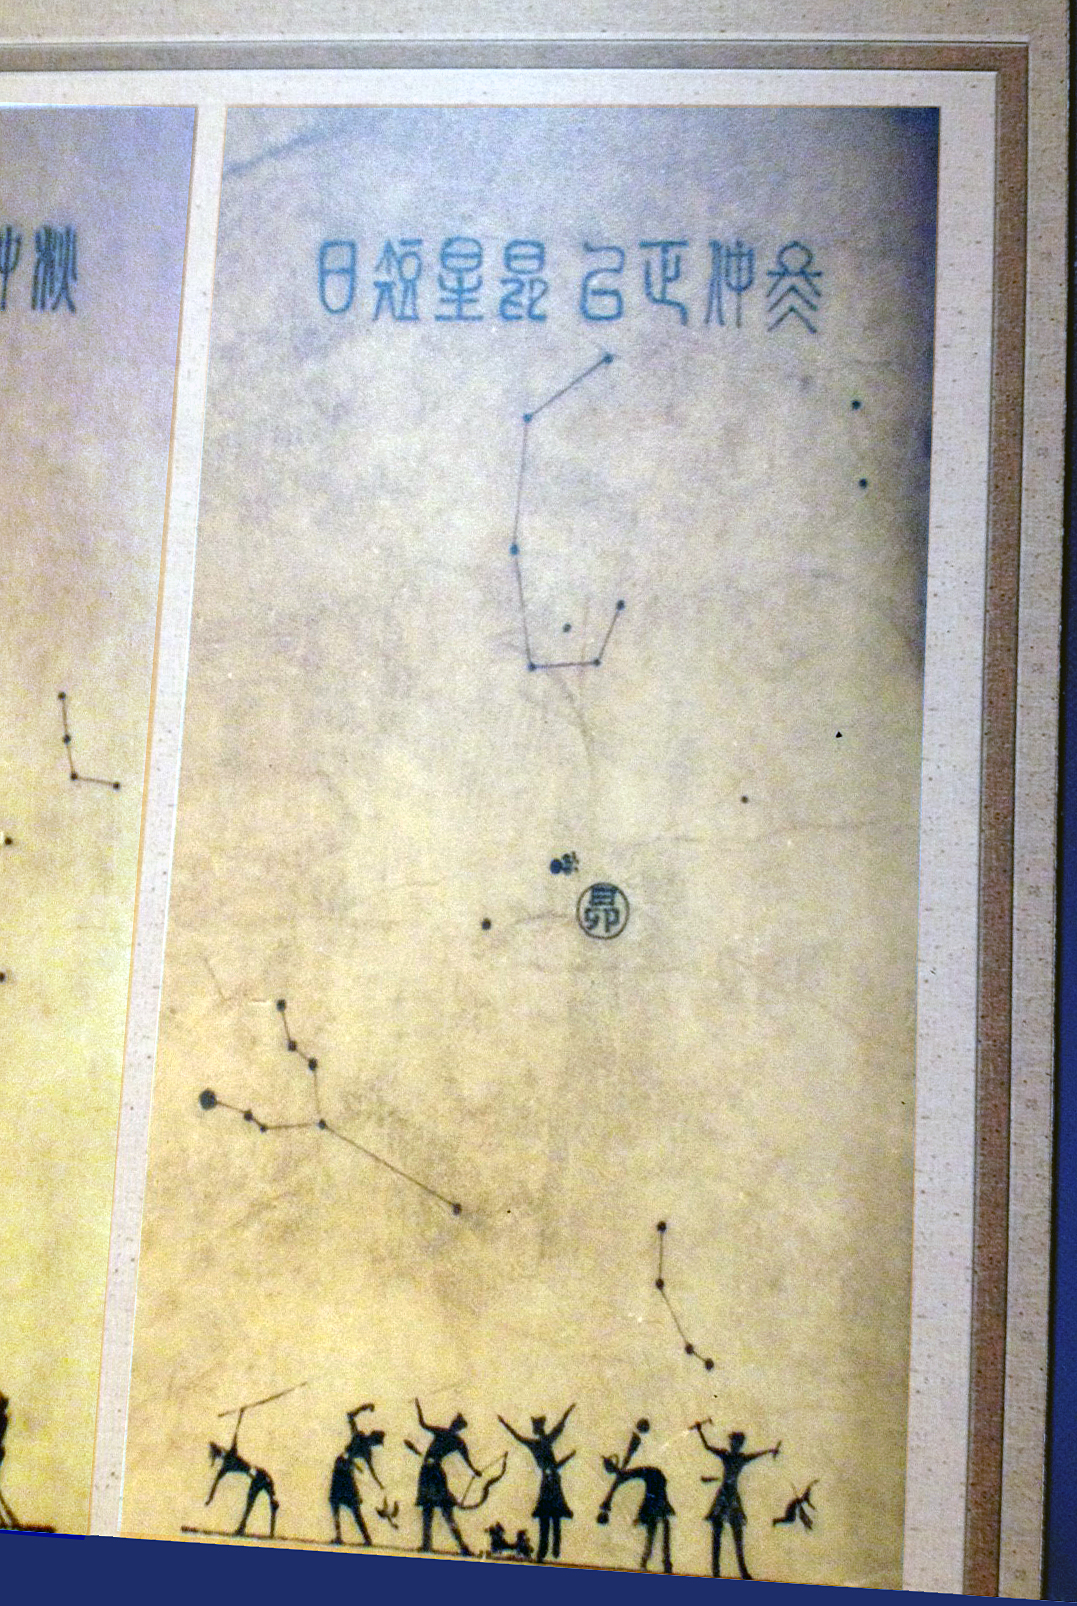 仲秋
日短星昴 以正仲冬
昴